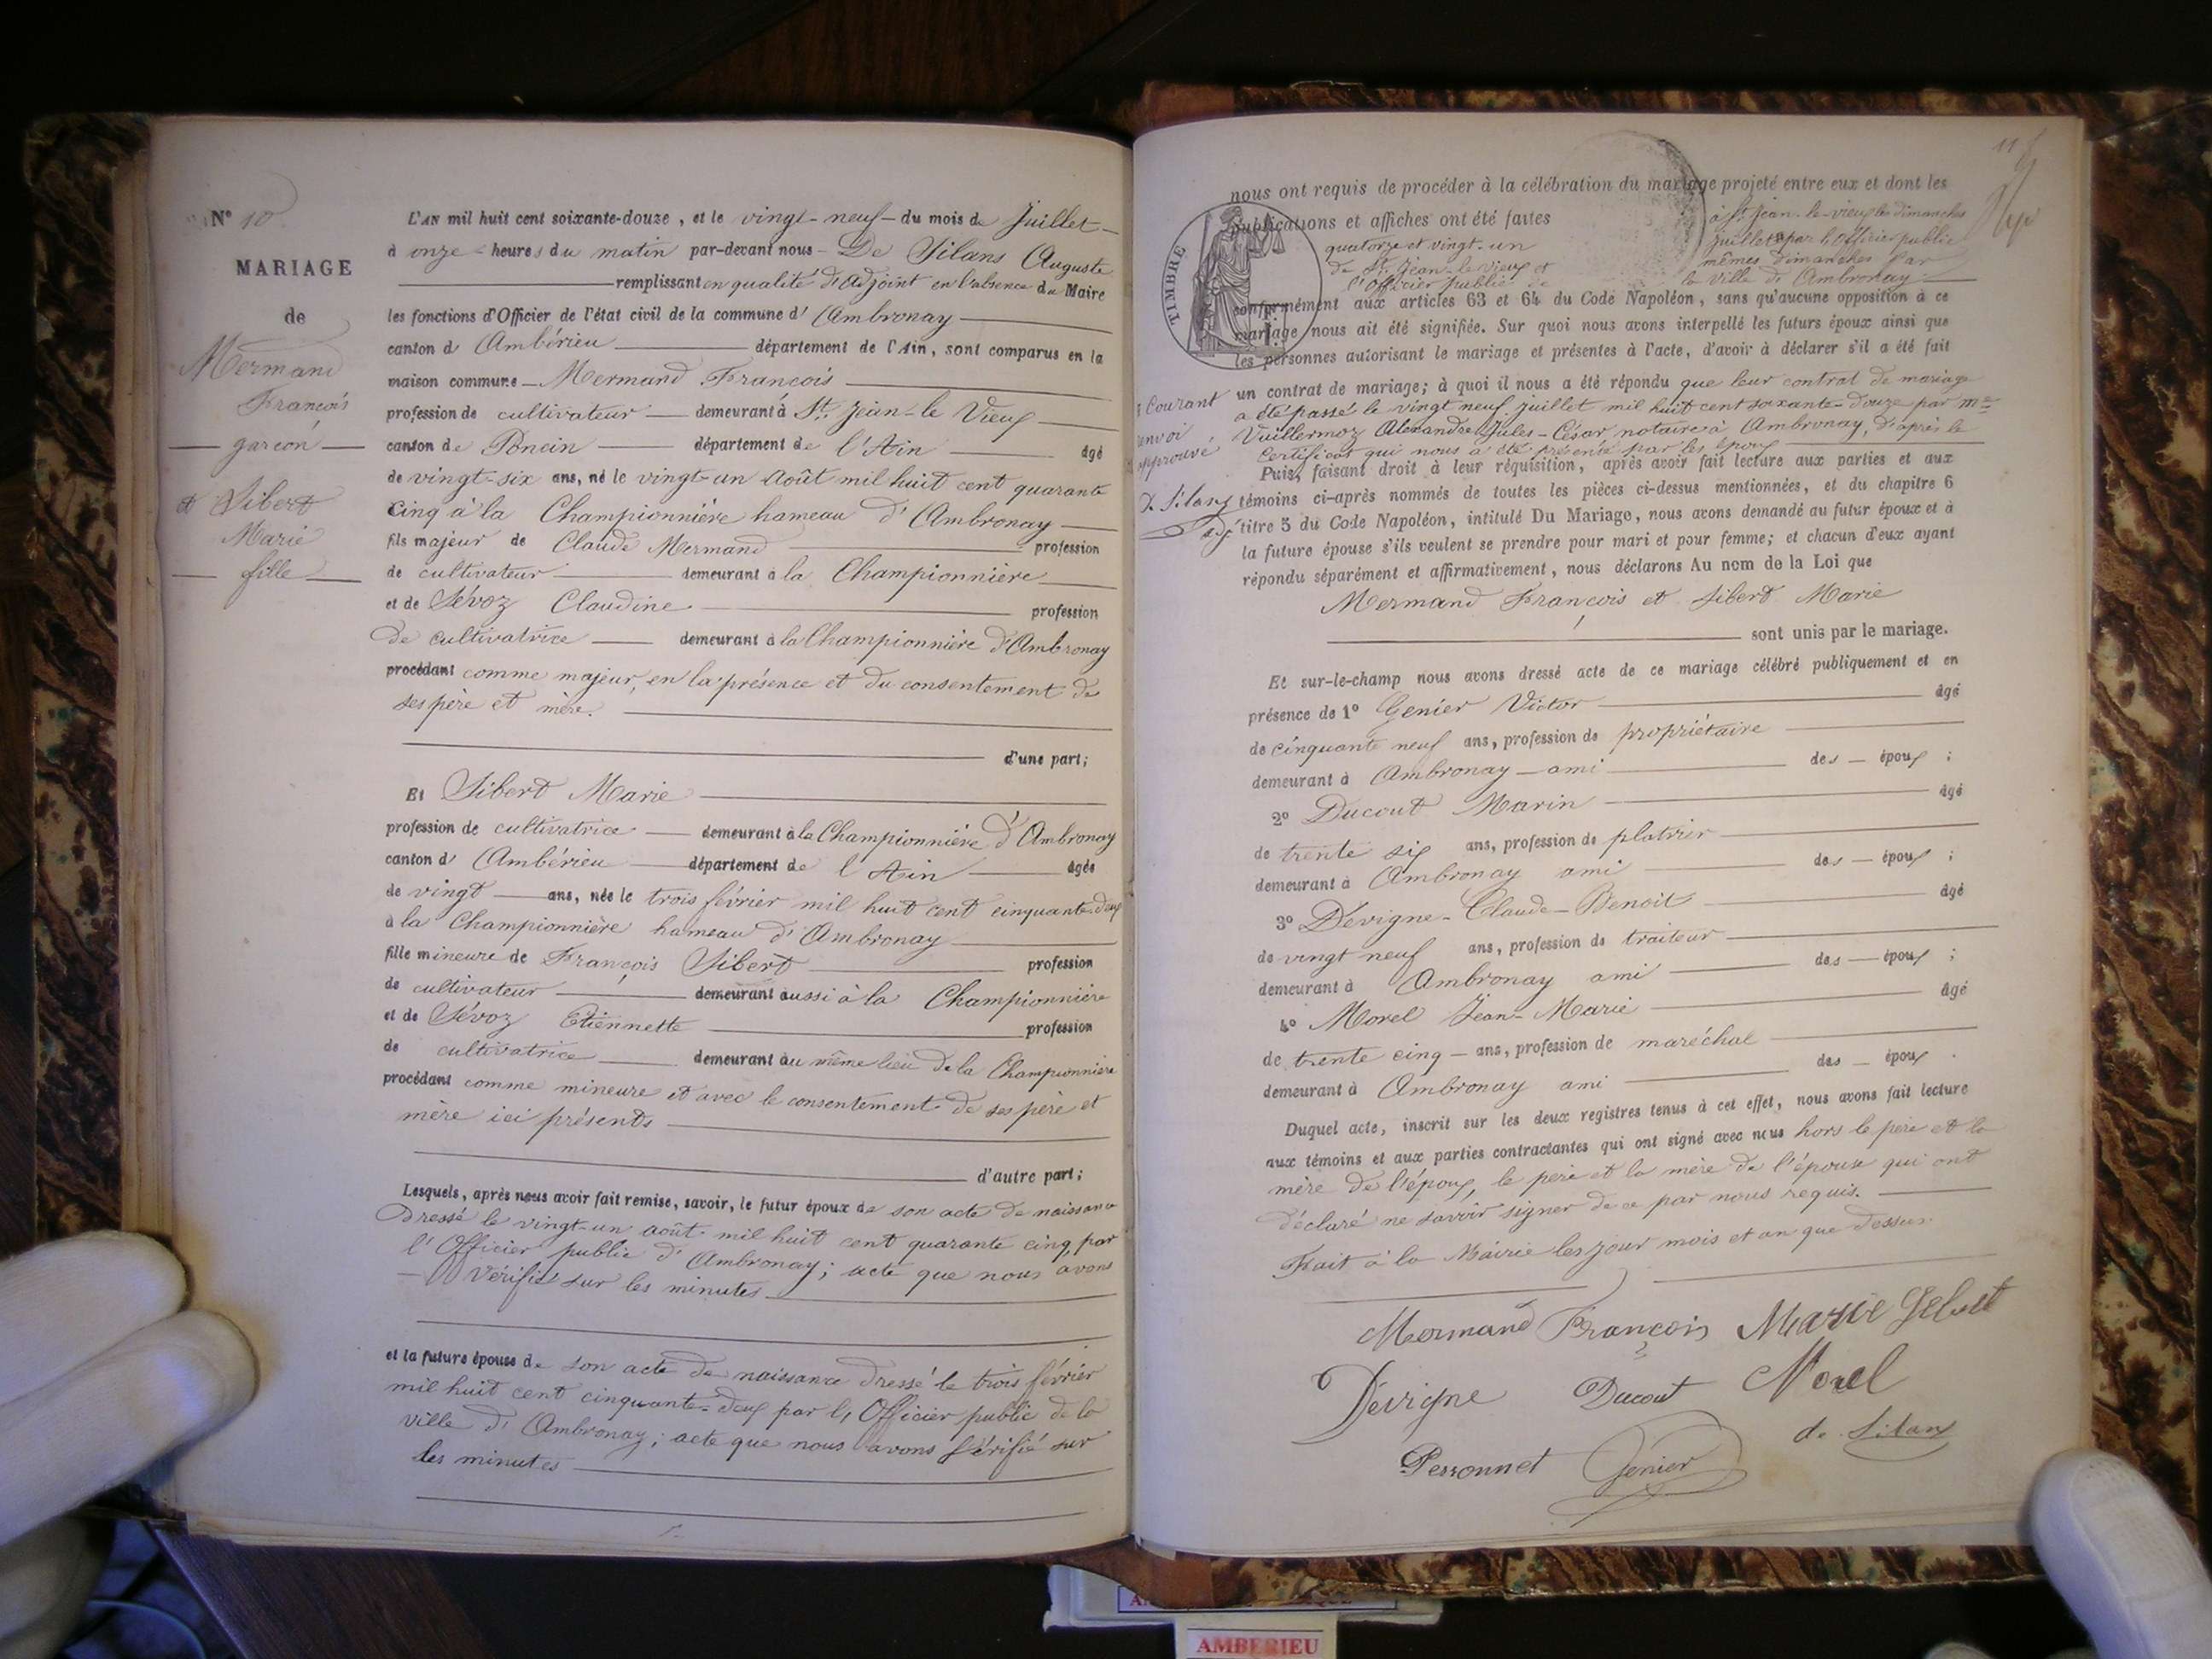 N° 10
MARIAGE
de
Mermand
François
garçon
et Sibert
Marie
fille
L'AN mil huit cent soixante-douze, et le vingt-neuf du mois de Juillet
à onze heures du matin par-devant nous De Silans Auguste
remplissant en qualité d'adjoint en l'absence du Maire
les fonctions d'Officier de l'état civil de la commune d'Ambronay
canton d'Ambérieu département de l'Ain, sont comparus en la
maison commune Mermand François
profession de cultivateur demeurant à St. Jean-le Vieux
canton de Poncin département de l'Ain âgé
de vingt-six ans, né le vingt-un Août mil huit cent quarante
cinq à la Championnière hameau d'Ambronay
fils majeur de Claude Mermand profession
de cultivateur demeurant à la Championnière
et de Sévoz Claudine profession
de cultivatrice demeurant à la Championnière d'Ambronay
procédant comme majeur, en la présence et du consentement de
ses père et mère.
d'une part;
Et Sibert Marie
profession de cultivatrice demeurant à la Championnière d'Ambronay
canton d'Ambérieu département de l'Ain âgée
de vingt ans, née le trois février mil huit cent cinquante-deux
à la Championnière hameau d'Ambronay
fille mineure de François Sibert profession
de cultivateur demeurant aussi à la Championnière
et de Sévoz Etiennette profession
de cultivatrice demeurant au même lieu de la Championnière
procédant comme mineure et avec le consentement de ses père et
mère ici présents
d'autre part;
Lesquels, après nous avoir fait remise, savoir, le futur époux de son acte de naissance
dressé le vingt-un août mil huit cent quarante cinq par
l'Officier public d'Ambronay; acte que nous avons
Vérifié sur les minutes
et la future épouse de son acte de naissance dressé le trois février
mil huit cent cinquante-deux par l'Officier public de la
ville d'Ambronay; acte que nous avons Vérifié sur
les minutes
nous ont requis de procéder à la célébration du mariage projeté entre eux et dont les
publications et affiches ont été faites à St. Jean-le-vieux les dimanches
quatorze et vingt-un juillet par l'Officier public
de St. Jean-le Vieux et mêmes dimanches par
l'Officier public de la Ville d'Ambronay
TIMBRE
conformément aux articles 63 et 64 du Code Napoléon, sans qu'aucune opposition à ce
mariage nous ait été signifiée. Sur quoi nous avons interpellé les futurs époux ainsi que
les personnes autorisant le mariage et présentes à l'acte, d'avoir à déclarer s'il a été fait
un contrat de mariage; à quoi il nous a été répondu que leur contrat de mariage
a été passé le vingt neuf juillet mil huit cent soixante-douze par Me
Vuillermoz Alexandre Jules-César notaire à Ambronay, d'après le
certificat qui nous a été présenté par les époux
Courant
renvoi
approuvé
De Silans
adjt
Puis, faisant droit à leur réquisition, après avoir fait lecture aux parties et aux
témoins ci-après nommés de toutes les pièces ci-dessus mentionnées, et du chapitre 6
titre 5 du Code Napoléon, intitulé Du Mariage, nous avons demandé au futur époux et à
la future épouse s'ils veulent se prendre pour mari et pour femme; et chacun d'eux ayant
répondu séparément et affirmativement, nous déclarons Au nom de la Loi que
Mermand François et Sibert Marie
sont unis par le mariage.
Et sur-le-champ nous avons dressé acte de ce mariage célébré publiquement et en
présence de 1° Genier Victor âgé
de cinquante neuf ans, profession de propriétaire
demeurant à Ambronay ami des époux;
2° Ducout Marin âgé
de trente six ans, profession de platrier
demeurant à Ambronay ami des époux;
3° Dévigne-Claude-Benoit âgé
de vingt neuf ans, profession de traiteur
demeurant à Ambronay ami des époux;
4° Morel Jean-Marie âgé
de trente cinq ans, profession de maréchal
demeurant à Ambronay ami des époux.
Duquel acte, inscrit sur les deux registres tenus à cet effet, nous avons fait lecture
aux témoins et aux parties contractantes qui ont signé avec nous hors le père et la
mère de l'époux, le père et la mère de l'épouse qui ont
déclaré ne savoir signer de ce par nous requis.
Fait à la Mairie les jour mois et an que dessus.
Mermand François Marie Sibert
Dévigne Ducout Morel
de Silans
Perronnet Génier
AMBERIEU